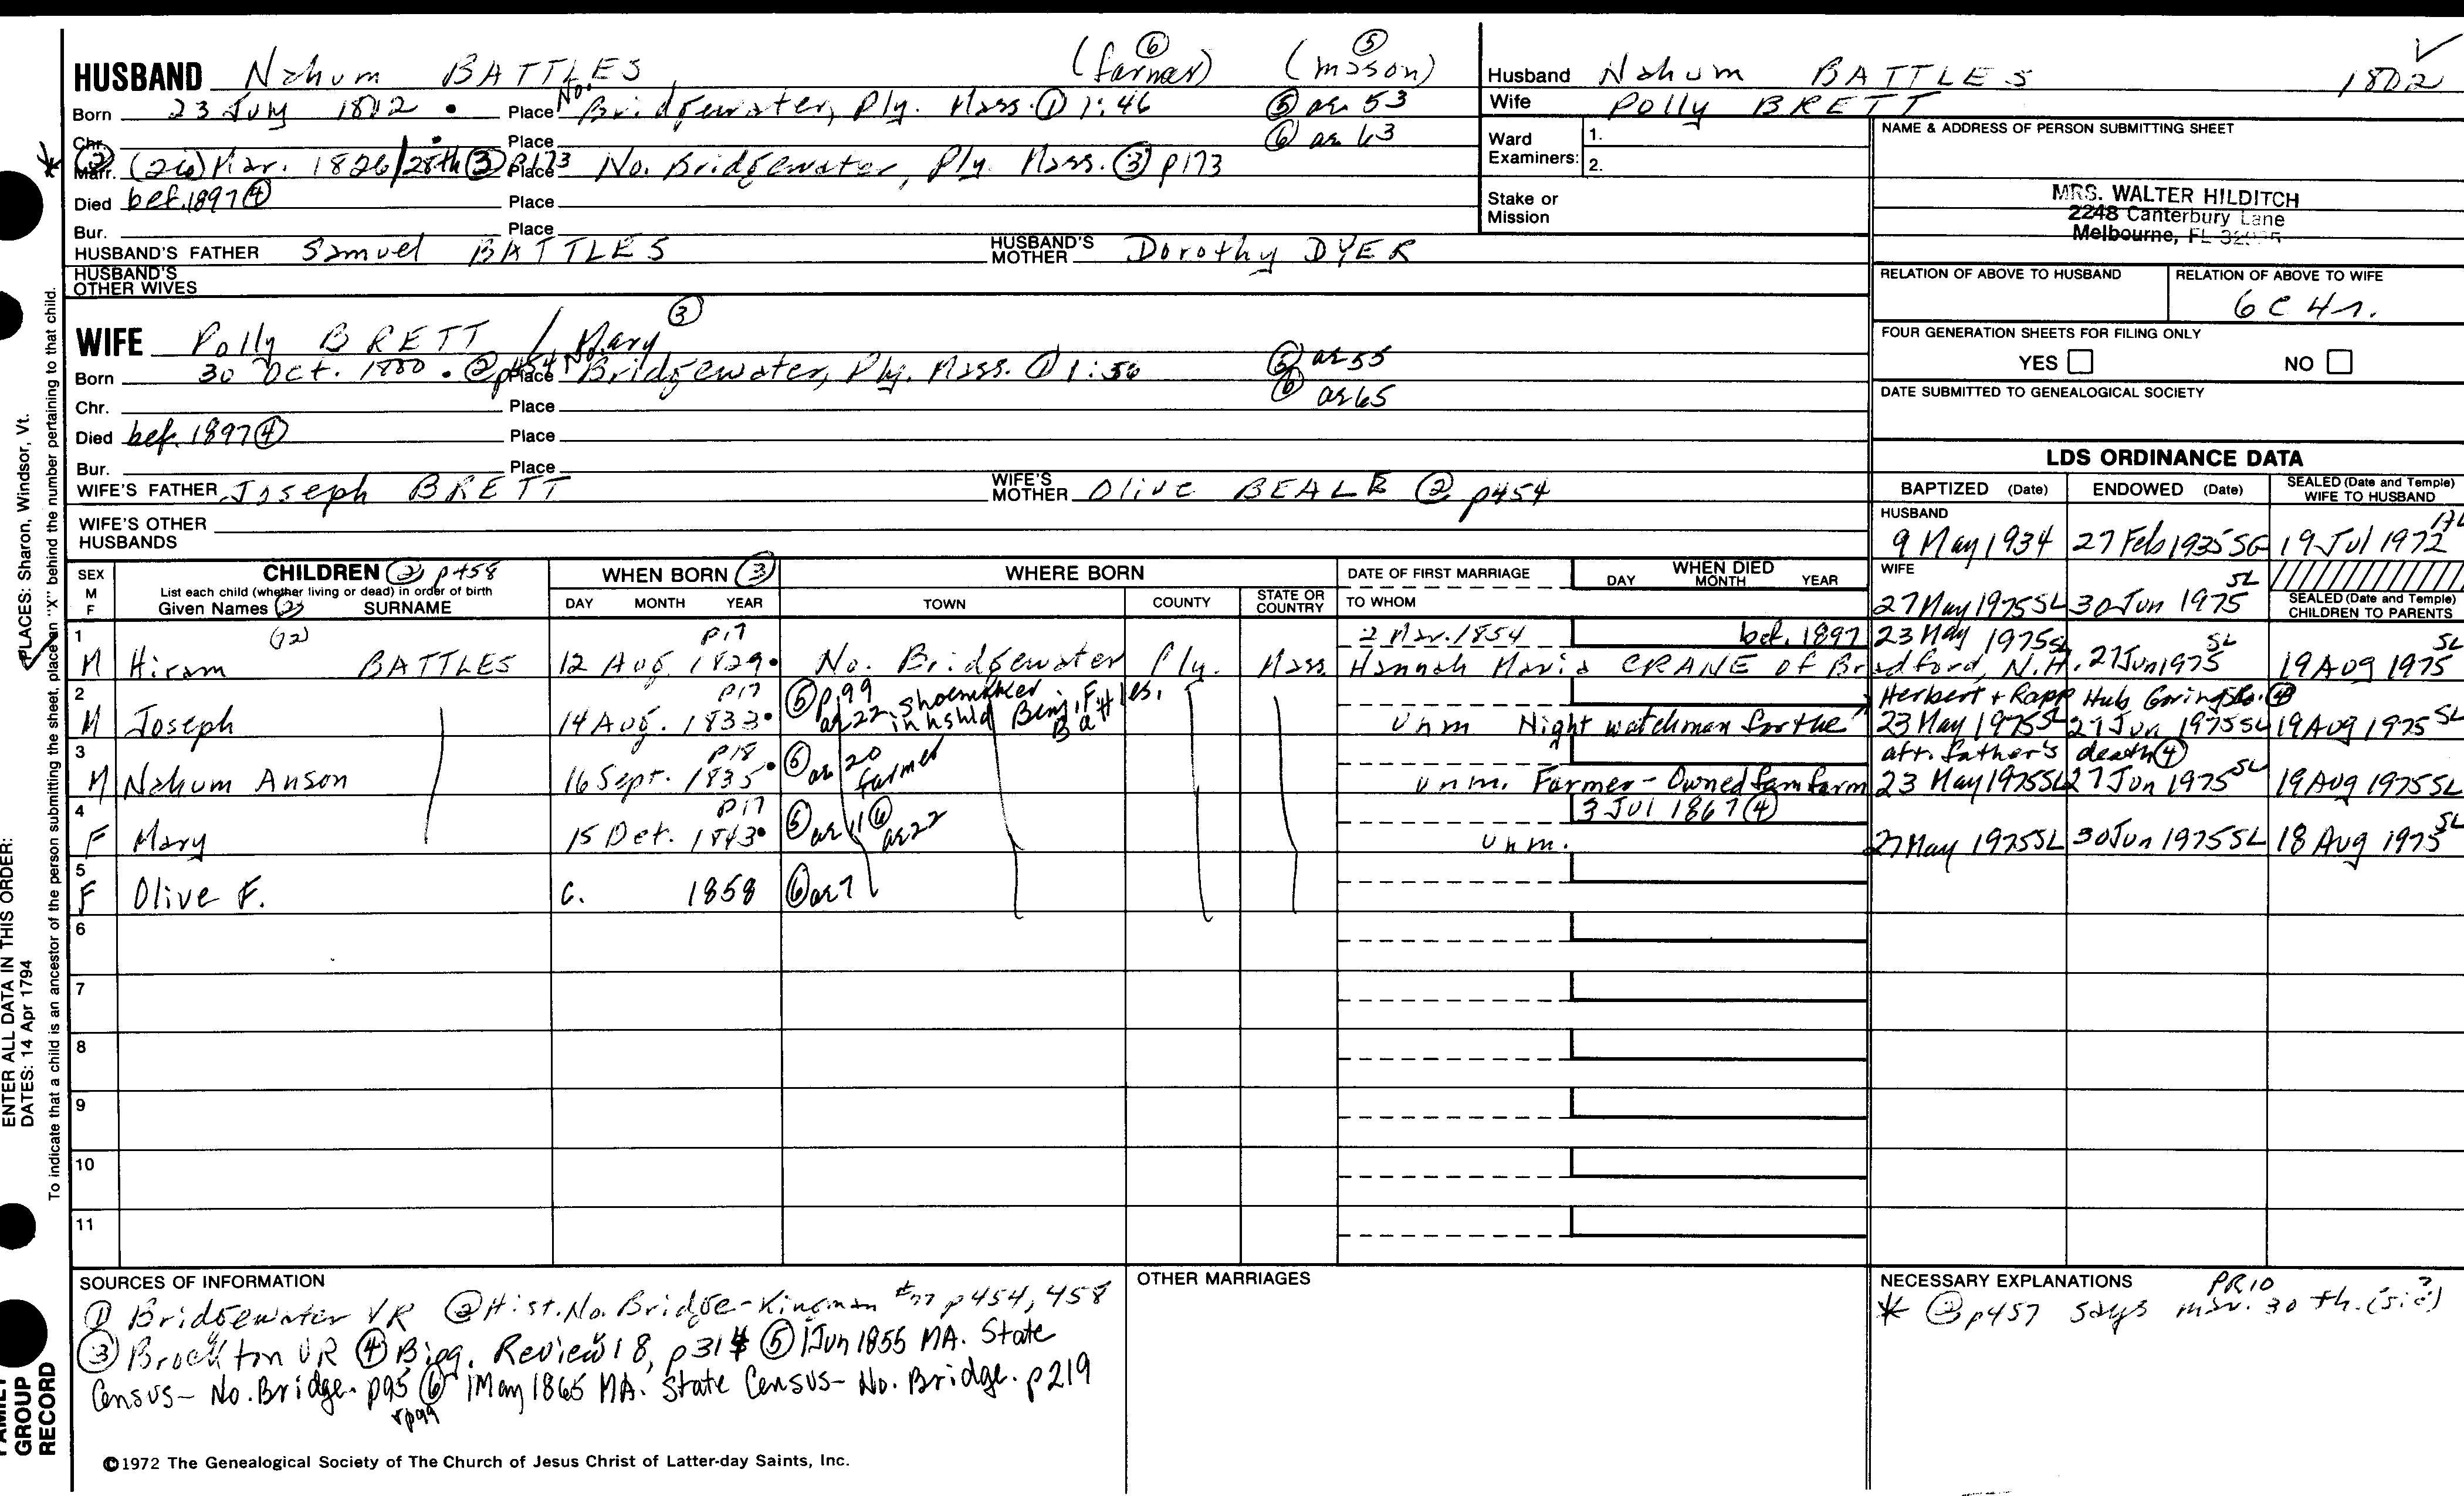 HUSBAND Nahum BATTLES (farmer) ⑥ (mason) ⑤
Born 23 July 1802 . Place No. Bridgewater, Ply. Mass. ① 1:46 ⑤ ae 53
Chr. Place ⑥ ae 63
* ② Marr. (26) Mar. 1826/28th ③ p173 Place No. Bridgewater, Ply. Mass. ③ p173
Died bef. 1897 ④ Place
Bur. Place
HUSBAND'S FATHER Samuel BATTLES HUSBAND'S MOTHER Dorothy DYER
HUSBAND'S OTHER WIVES
WIFE Polly BRETT / Mary ③
Born 30 Oct. 1800 . ② p454 Place No. Bridgewater, Ply. Mass. ① 1:56 ⑤ ae 55
Chr. Place ⑥ ae 65
Died bef. 1897 ④ Place
Bur. Place
WIFE'S FATHER Joseph BRETT WIFE'S MOTHER Olive BEALE ② p454
WIFE'S OTHER HUSBANDS
Husband Nahum BATTLES 1802 ✓
Wife Polly BRETT
Ward Examiners: 1.
2.
Stake or Mission
NAME & ADDRESS OF PERSON SUBMITTING SHEET
MRS. WALTER HILDITCH
2248 Canterbury Lane
Melbourne, FL
RELATION OF ABOVE TO HUSBAND RELATION OF ABOVE TO WIFE
6C 4r.
FOUR GENERATION SHEETS FOR FILING ONLY
YES NO
DATE SUBMITTED TO GENEALOGICAL SOCIETY
LDS ORDINANCE DATA
BAPTIZED (Date) ENDOWED (Date) SEALED (Date and Temple) WIFE TO HUSBAND
HUSBAND
9 May 1934 27 Feb 1935 SG 19 Jul 1972
WIFE
27 May 1975 SL 30 Jun 1975 SL
SEALED (Date and Temple) CHILDREN TO PARENTS
SEX M F CHILDREN ② p458 WHEN BORN ③ WHERE BORN DATE OF FIRST MARRIAGE WHEN DIED
List each child (whether living or dead) in order of birth
Given Names ② SURNAME DAY MONTH YEAR TOWN COUNTY STATE OR COUNTRY TO WHOM DAY MONTH YEAR
1 p17 2 Mar. 1854 bef. 1897
M Hiram BATTLES 12 Aug. 1829 . No. Bridgewater Ply. Mass. Hannah Maria CRANE of Bradford, N.H. 23 May 1975 SL 27 Jun 1975 SL 19 Aug 1975 SL
2 p17 ⑤ p99 ae 22 shoemaker in hshld Benj. F. Battles.
M Joseph 14 Aug. 1833 . Unm Night watchman for the Herbert + Rapp Hub Goring Co. ④ 23 May 1975 SL 27 Jun 1975 SL 19 Aug 1975 SL
3 p18 ⑤ ae 20 farmer
M Nahum Anson 16 Sept. 1835 . Unm. Farmer - Owned fam farm aft. father's death ④ 23 May 1975 SL 27 Jun 1975 SL 19 Aug 1975 SL
4 p17 ⑤ ae 11 ⑥ ae 22 3 Jul 1867 ④
F Mary 15 Oct. 1843 . Unm. 27 May 1975 SL 30 Jun 1975 SL 18 Aug 1975 SL
5
F Olive F. c. 1858 ⑥ ae 7
6
7
8
9
10
11
SOURCES OF INFORMATION
① Bridgewater VR ② Hist. No. Bridge - Kingman p454, 458
③ Brockton VR ④ Biog. Review 18, p314 ⑤ 1 Jun 1855 MA. State
Census - No. Bridge. p95 ⑥ 1 May 1865 MA. State Census - No. Bridge. p219
+p99
OTHER MARRIAGES
NECESSARY EXPLANATIONS PR10
* ② p457 says mar. 30th. (sic?)
©1972 The Genealogical Society of The Church of Jesus Christ of Latter-day Saints, Inc.
FAMILY GROUP RECORD
ENTER ALL DATA IN THIS ORDER:
DATES: 14 Apr 1794
PLACES: Sharon, Windsor, Vt.
To indicate that a child is an ancestor of the person submitting the sheet, place an "X" behind the number pertaining to that child.